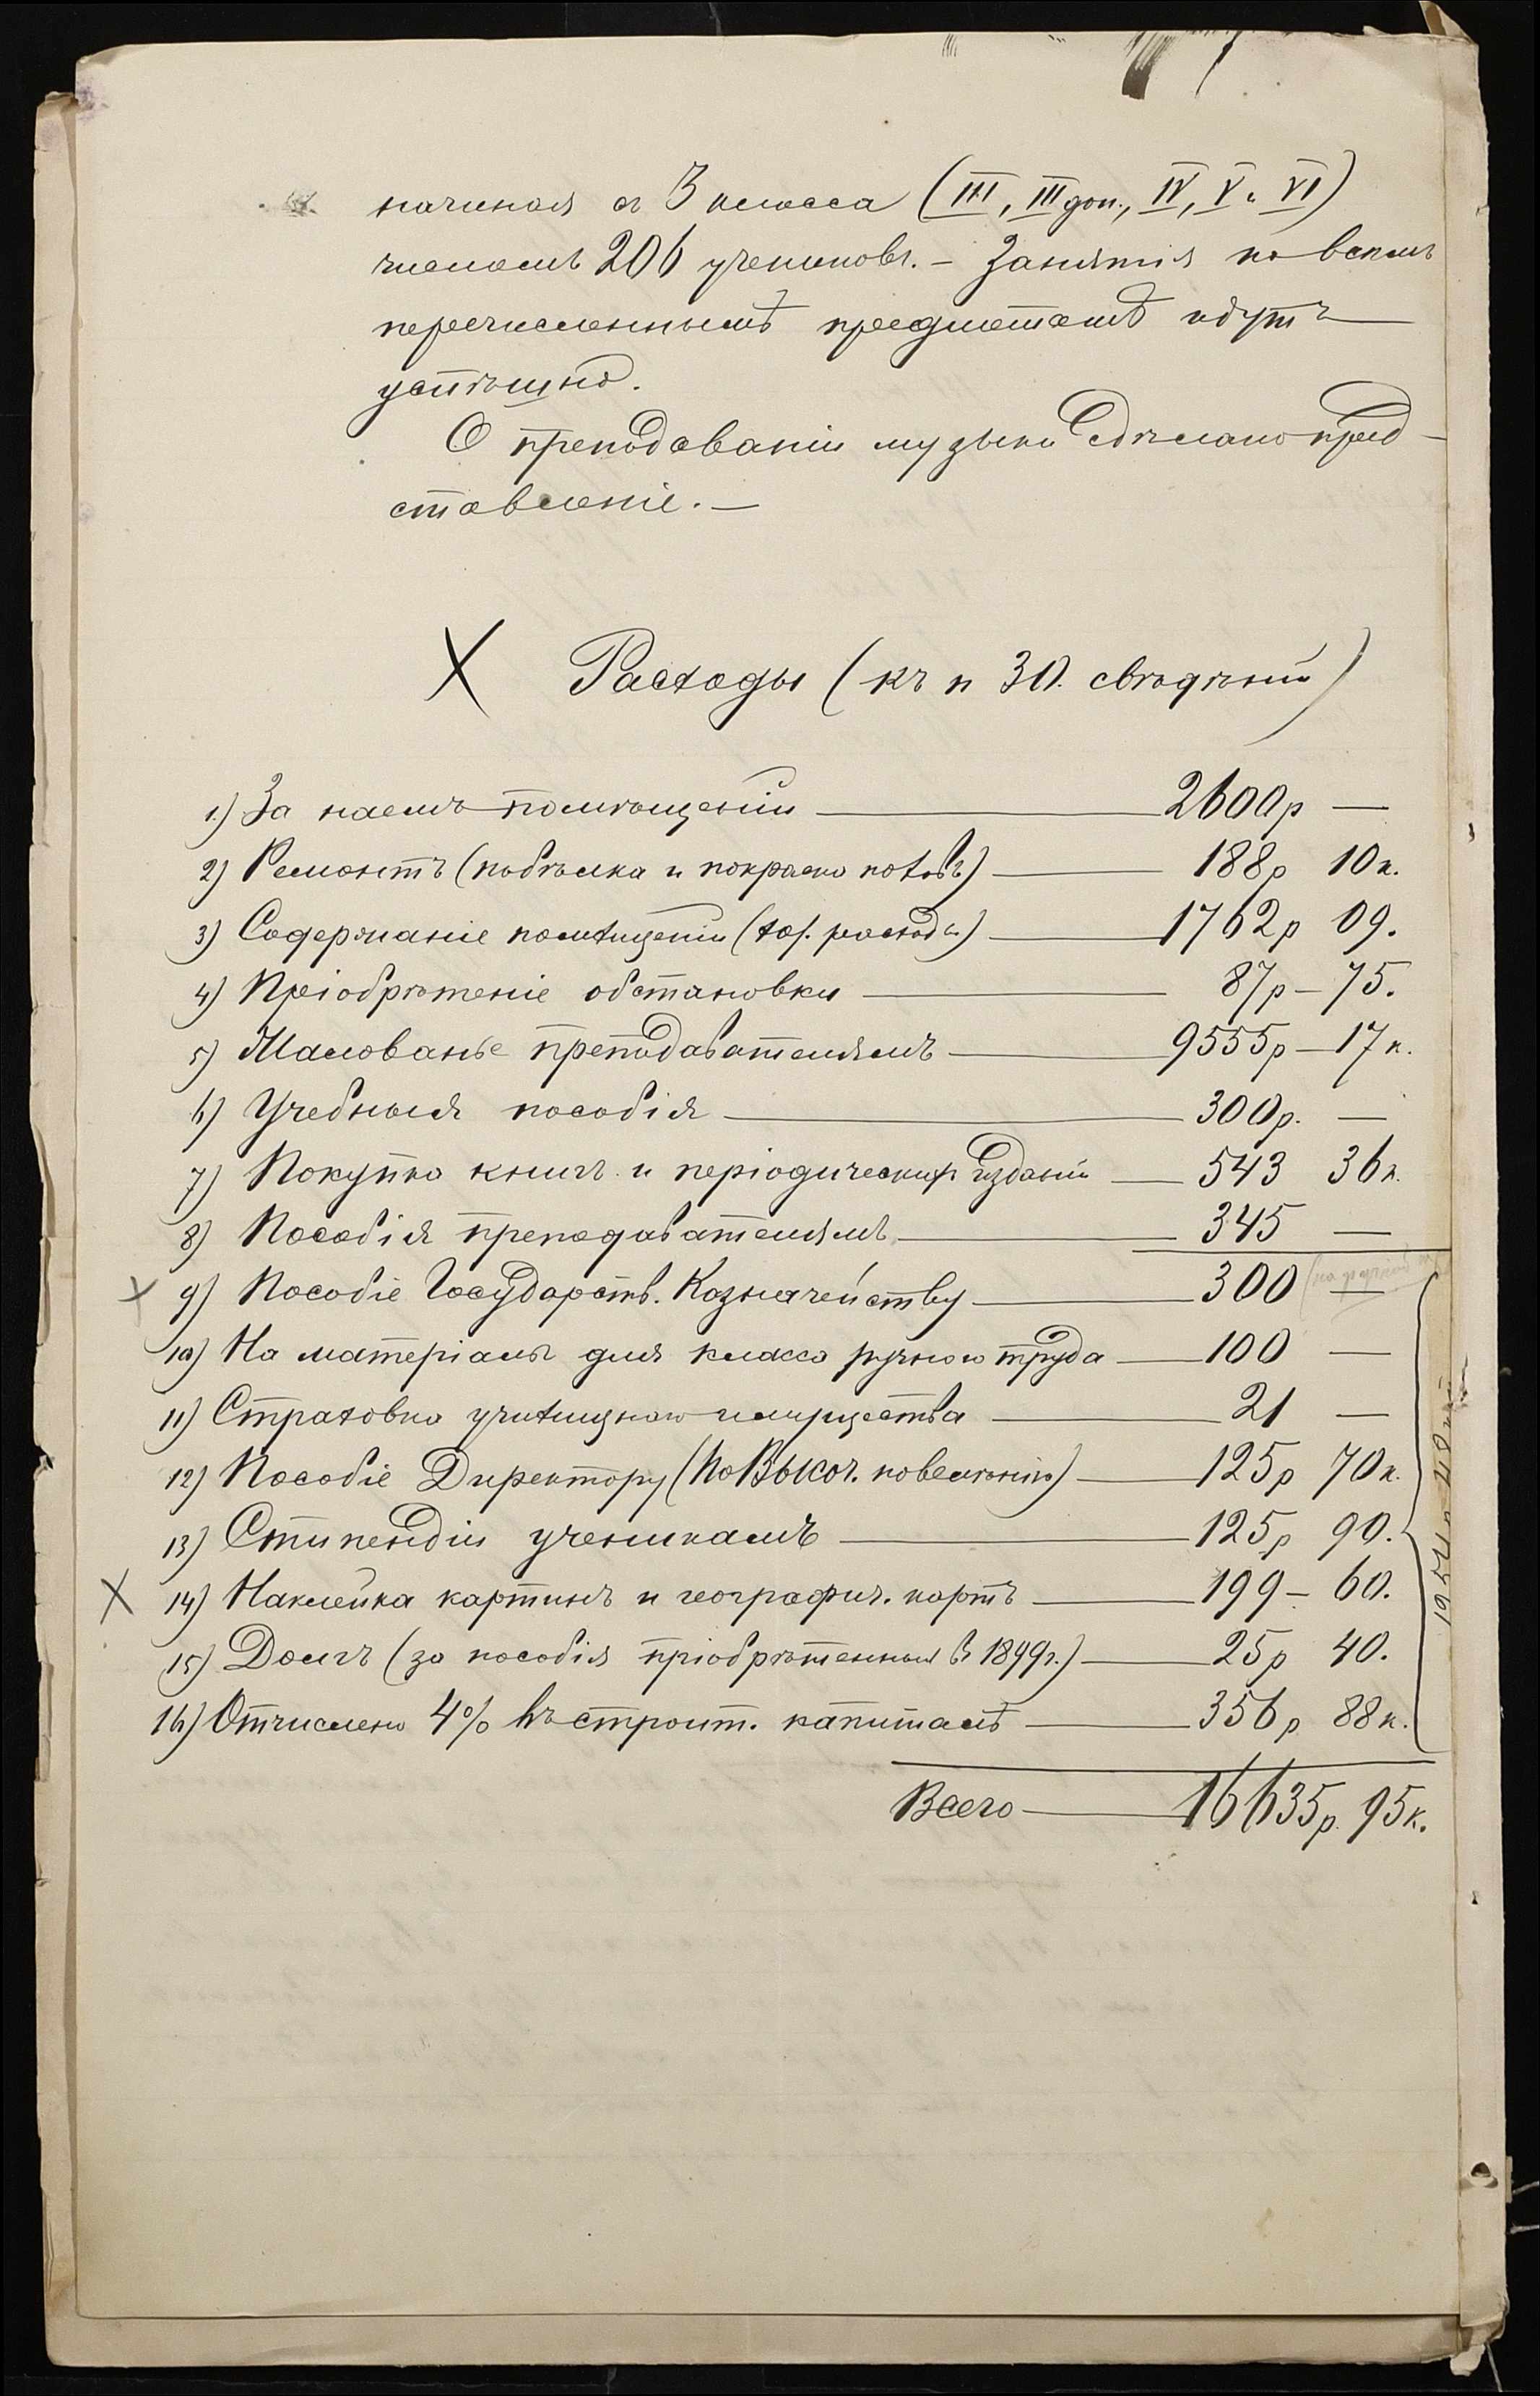 начиная съ 3 класса (III, III доп., IV, V и VI)
числомъ 206 учениковъ. – Занятія по всѣмъ
перечисленнымъ предметамъ идутъ
успѣшно.
О преподаваніи музыки сдѣлано пред-
ставленіе. –
Расходы (къ п 30. свѣдѣній)
1) За наемъ помѣщенія — 2600р —
2) Ремонтъ (побѣлка и покраска половъ) — 188р 10к.
3) Содержаніе помѣщенія (хоз. расходы) — 1762р 09.
4) Пріобрѣтеніе обстановки — 87р – 75.
5) Жалованье преподавателямъ — 9555р – 17к.
6) Учебныя пособія — 300р. —
7) Покупка книгъ и періодическихъ изданій — 543 36к.
8) Пособія преподавателямъ — 345 —
9) Пособіе Государств. Казначейству — 300 —
10) На матеріалы для класса ручного труда — 100 —
11) Страховка училищнаго имущества — 21 —
12) Пособіе Директору (по Высоч. повелѣнію) — 125р 70к.
13) Стипендіи ученикамъ — 125р 90.
14) Наклейка картинъ и географич. картъ — 199 – 60.
15) Долгъ (за пособія пріобрѣтенныя въ 1899г.) — 25р 40.
16) Отчислено 4% въ строит. капиталъ — 356р 88к.
Всего — 16635р. 95к.